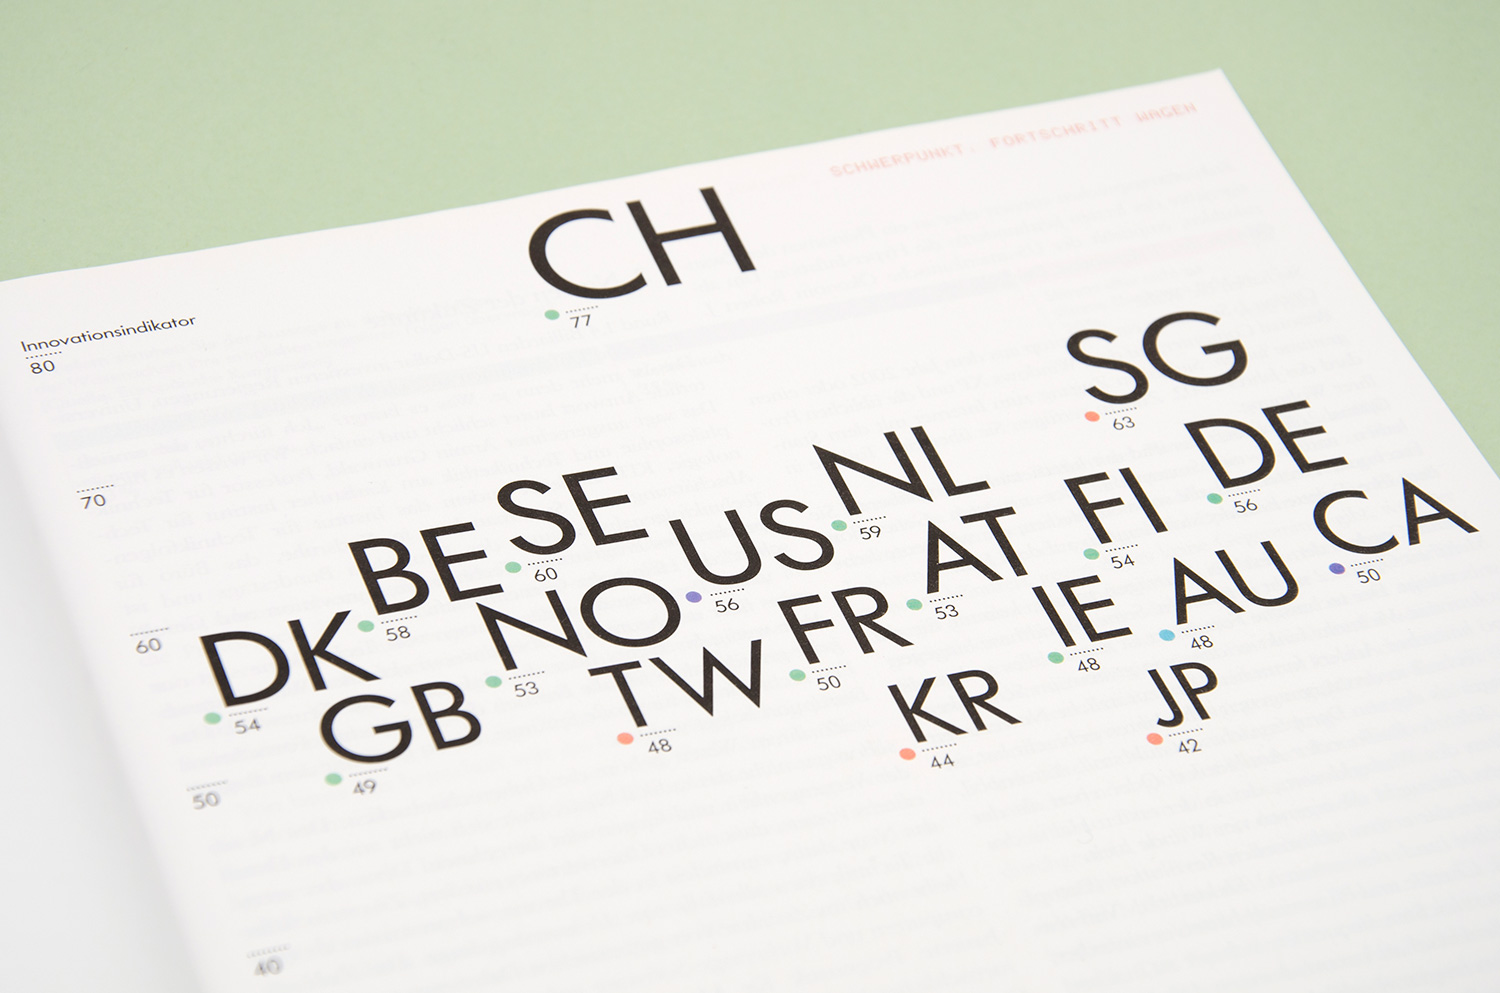 SCHWERPUNKT. FORTSCHRITT WAGEN
CH
77
Innovationsindikator
80
SG
63
70
DE
56
NL
59
SE
60
FI
54
CA
50
US
56
BE
58
AT
53
AU
48
60
NO
53
FR
50
IE
48
DK
54
TW
48
KR
44
JP
42
GB
49
50
40